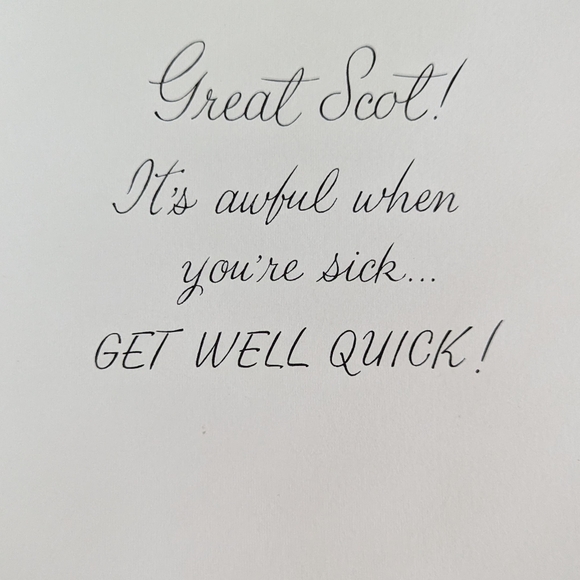 Great Scot!
It's awful when
you're sick...
GET WELL QUICK!